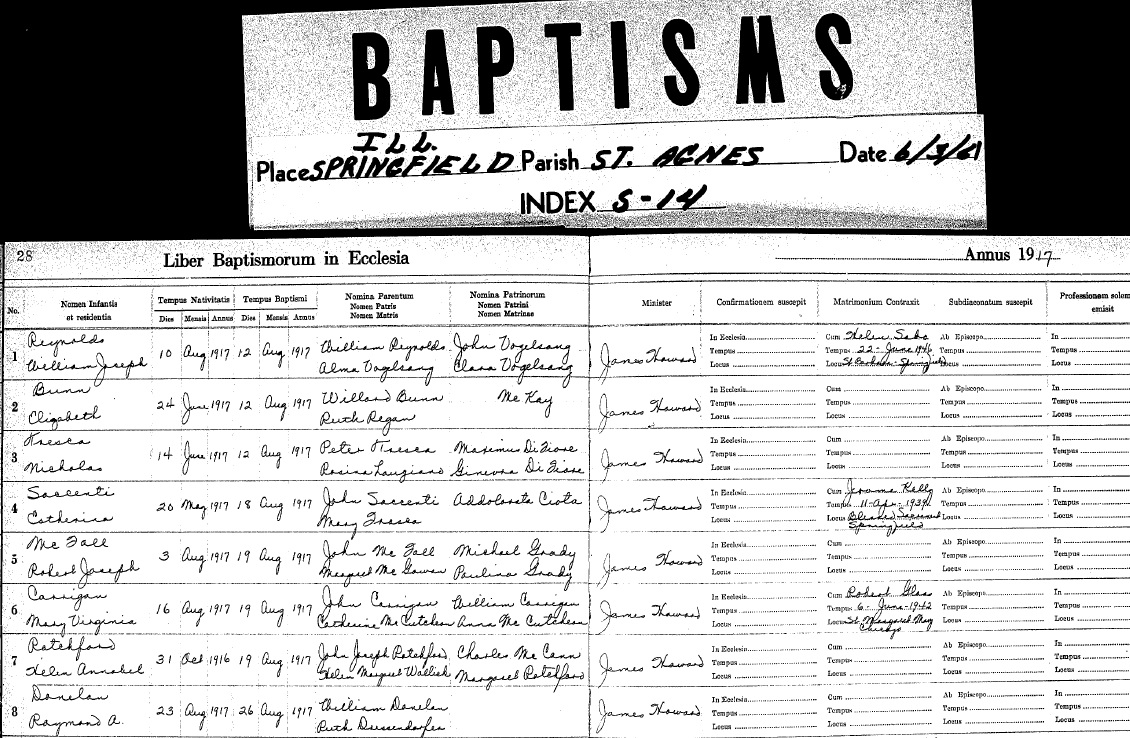 BAPTISMS
ILL.
Place SPRINGFIELD Parish ST. AGNES Date 6/3/61
INDEX S-14
28 Liber Baptismorum in Ecclesia Annus 1917
No. Nomen Infantis et residentia Tempus Nativitatis Dies Mensis Annus Tempus Baptismi Dies Mensis Annus Nomina Parentum Nomen Patris Nomen Matris Nomina Patrinorum Nomen Patrini Nomen Matrinae Minister Confirmationem suscepit Matrimonium Contraxit Subdiaconatum suscepit Professionem solem emisit
1 Reynolds William Joseph 10 Aug 1917 12 Aug 1917 William Reynolds John Vogelsang James Howard In Ecclesia Cum Helen Sabo Ab Episcopo In
Alma Vogelsang Clara Vogelsang Tempus Tempus 22 - June 1946 Tempus Tempus
Locus Locus Springfield Locus Locus
2 Bunn Elizabeth 24 June 1917 12 Aug 1917 Willard Bunn Mc Kay James Howard In Ecclesia Cum Ab Episcopo In
Ruth Regan Tempus Tempus Tempus Tempus
Locus Locus Locus Locus
3 Fresca Nicholas 14 June 1917 12 Aug 1917 Peter Fresca Maximus Di Fiore James Howard In Ecclesia Cum Ab Episcopo In
Rosina Ginevra Di Fiore Tempus Tempus Tempus Tempus
Locus Locus Locus Locus
4 Saccenti Catherina 20 May 1917 18 Aug 1917 John Saccenti Addolorata Ciota James Howard In Ecclesia Cum Jerome Kelly Ab Episcopo In
Mary Fresca Tempus Tempus 11-Apr-1939 Tempus Tempus
Locus Locus Blessed Sacrament Locus Locus
Springfield
5 Mc Fall Robert Joseph 3 Aug 1917 19 Aug 1917 John Mc Fall Michael Grady James Howard In Ecclesia Cum Ab Episcopo In
Margaret Mc Gowan Paulina Grady Tempus Tempus Tempus Tempus
Locus Locus Locus Locus
6 Carrigan Mary Virginia 16 Aug 1917 19 Aug 1917 John Carrigan William Carrigan James Howard In Ecclesia Cum Robert Glass Ab Episcopo In
Catherine McCutcheon Anna McCutcheon Tempus Tempus 6 - June - 1942 Tempus Tempus
Locus Locus St. Margaret Mary Locus Locus
Chicago
7 Ratchford Helen Annabel 31 Oct 1916 19 Aug 1917 John Joseph Ratchford Charles McCann James Howard In Ecclesia Cum Ab Episcopo In
Helen Margaret Wallish Margaret Ratchford Tempus Tempus Tempus Tempus
Locus Locus Locus Locus
8 Donelan Raymond A. 23 Aug 1917 26 Aug 1917 William Donelan James Howard In Ecclesia Cum Ab Episcopo In
Ruth Dressendorfer Tempus Tempus Tempus Tempus
Locus Locus Locus Locus